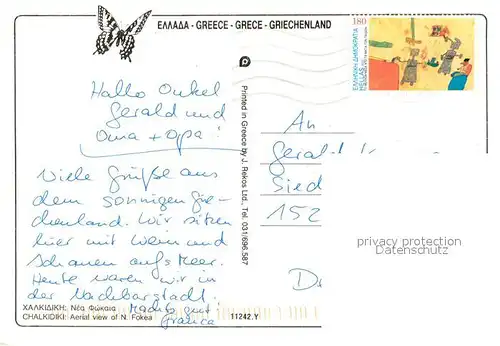 ΕΛΛΑΔΑ - GREECE - GRECE - GRIECHENLAND
180
ΕΛΛΗΝΙΚΗ ΔΗΜΟΚΡΑΤΙΑ
HELLAS
Hallo Onkel
Gerald und
Oma + Opa!
Viele Grüße aus
dem sonnigen Grie-
chenland. Wir sitzen
hier mit Wein und
schauen aufs Meer.
Heute waren wir in
der Nachbarstadt.
Machts gut
Franca
ΧΑΛΚΙΔΙΚΗ: Νέα Φώκαια
CHALKIDIKI: Aerial view of N. Fokea
11242.Y
Printed in Greece by J. Rekos Ltd., Tel. 031/696.587
An
Geral
Sied
152
privacy protection
Datenschutz
D